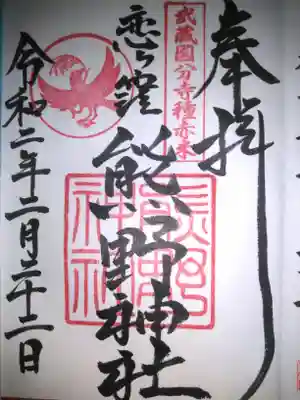 奉拝
武蔵国分寺種赤米
恋ヶ窪
熊野神社
令和二年二月二十二日
熊野神社